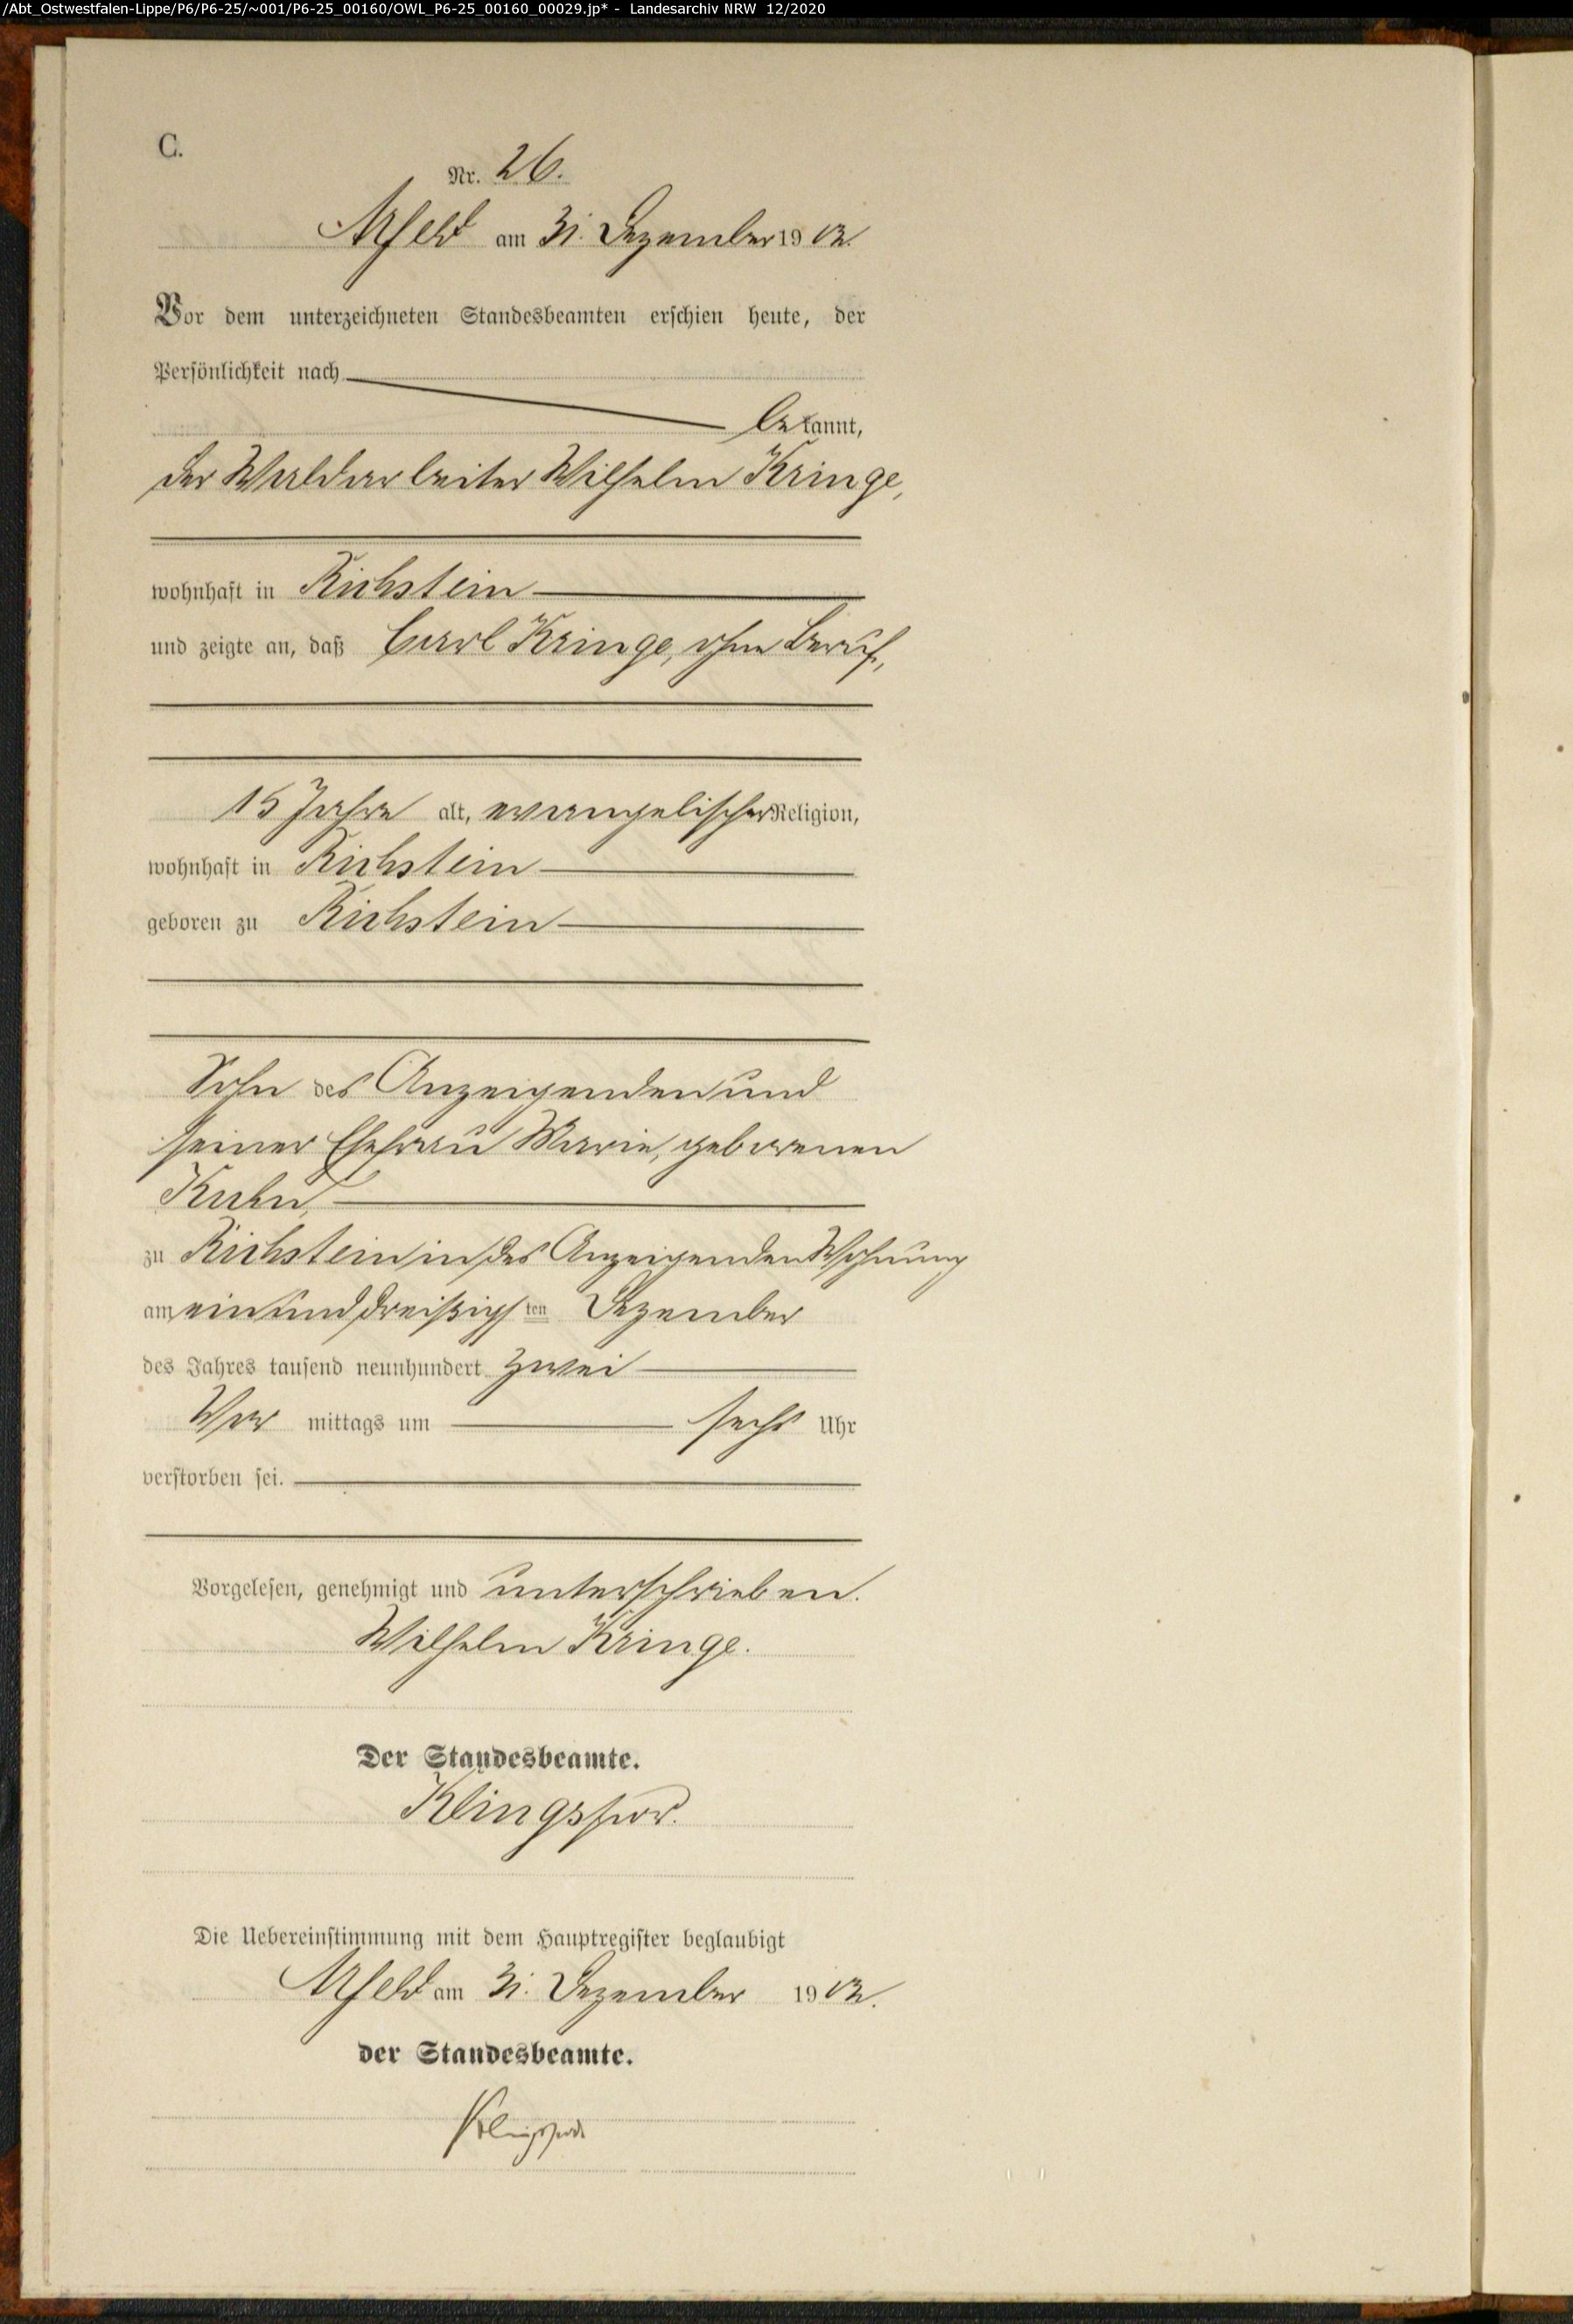 /Abt_Ostwestfalen-Lippe/P6/P6-25/~001/P6-25_00160/OWL_P6-25_00160_00029.jp* - Landesarchiv NRW 12/2020
C.
Nr. 26.
Arfeld am 31. Dezember 19 02.
Vor dem unterzeichneten Standesbeamten erschien heute, der
Persönlichkeit nach
bekannt,
der Waldarbeiter Wilhelm Kringe,
wohnhaft in Richstein
und zeigte an, daß Carl Kringe, ohne Beruf,
15 Jahre alt, evangelischer Religion,
wohnhaft in Richstein
geboren zu Richstein
Sohn des Anzeigenden und
seiner Ehefrau Marie, geborenen
zu Richstein in des Anzeigenden Wohnung
am einunddreißigsten Dezember
des Jahres tausend neunhundert zwei
Vor mittags um sechs Uhr
verstorben sei.
Vorgelesen, genehmigt und unterschrieben.
Wilhelm Kringe.
Der Standesbeamte.
Klingspor.
Die Uebereinstimmung mit dem Hauptregister beglaubigt
Arfeld am 31. Dezember 19 02.
der Standesbeamte.
Klingspor